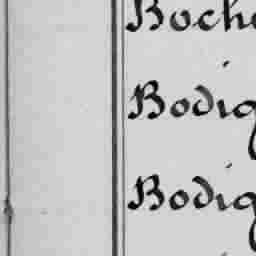 Boche
Bodig
Bodig